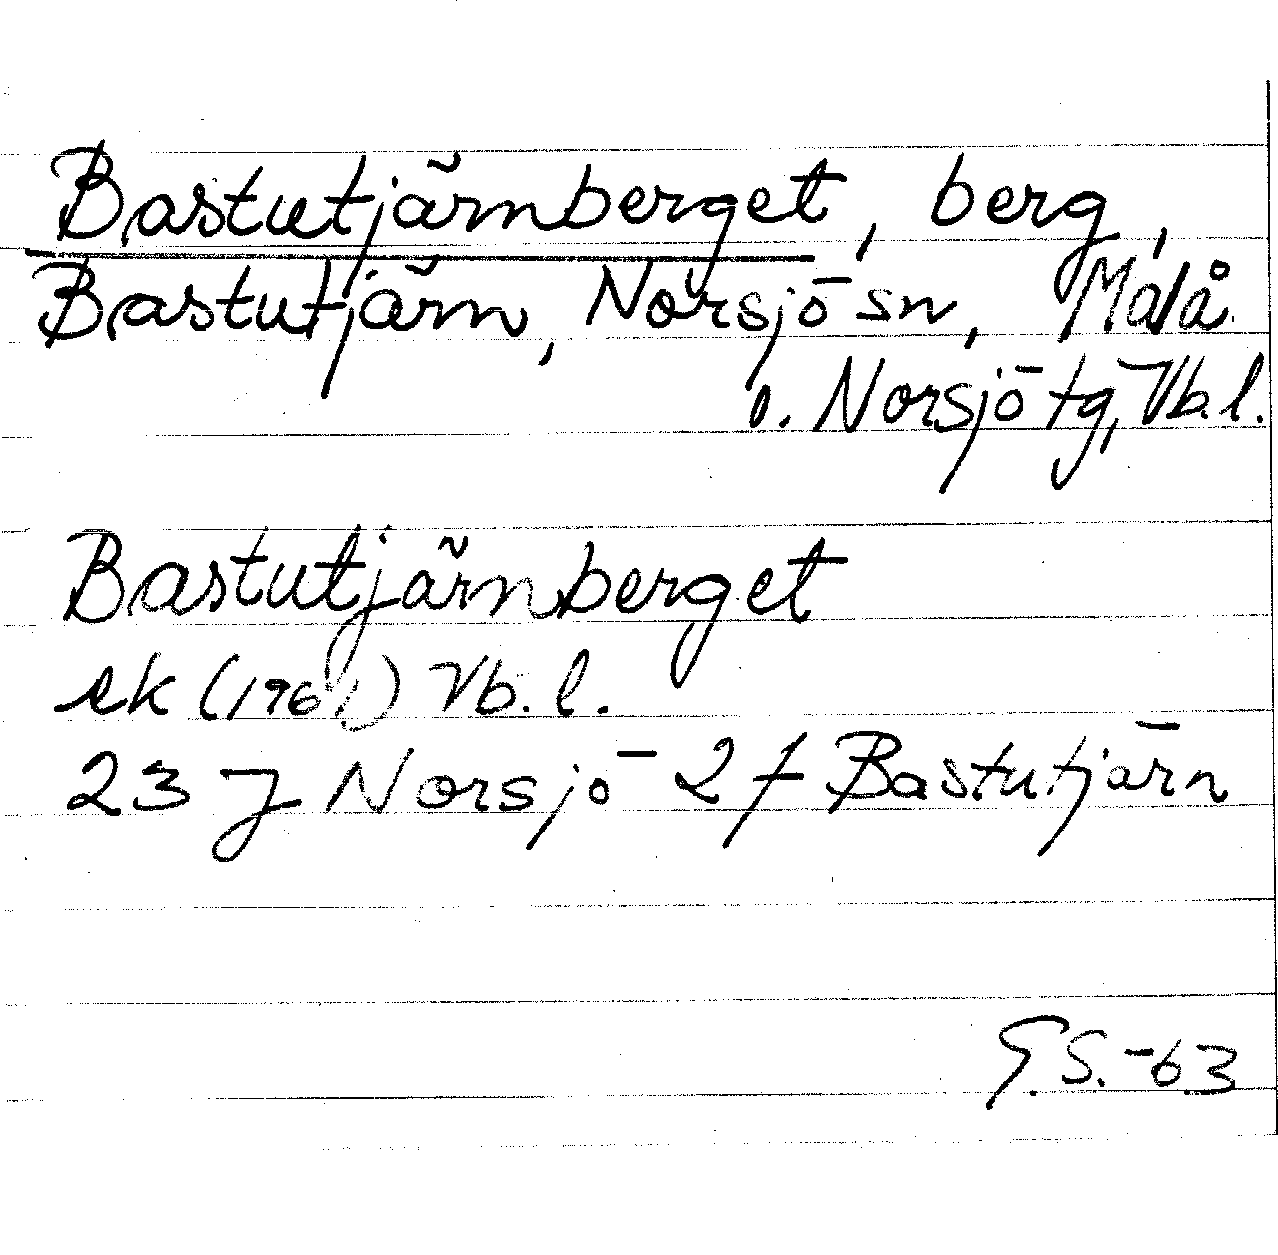 Bastutjärnberget, berg,
Bastutjärn, Norsjö sn, Malå
o. Norsjö tg, Vb.l.
Bastutjärnberget
ek (1961) Vb. l.
23 J Norsjö 2 f Bastutjärn
G.S.-63